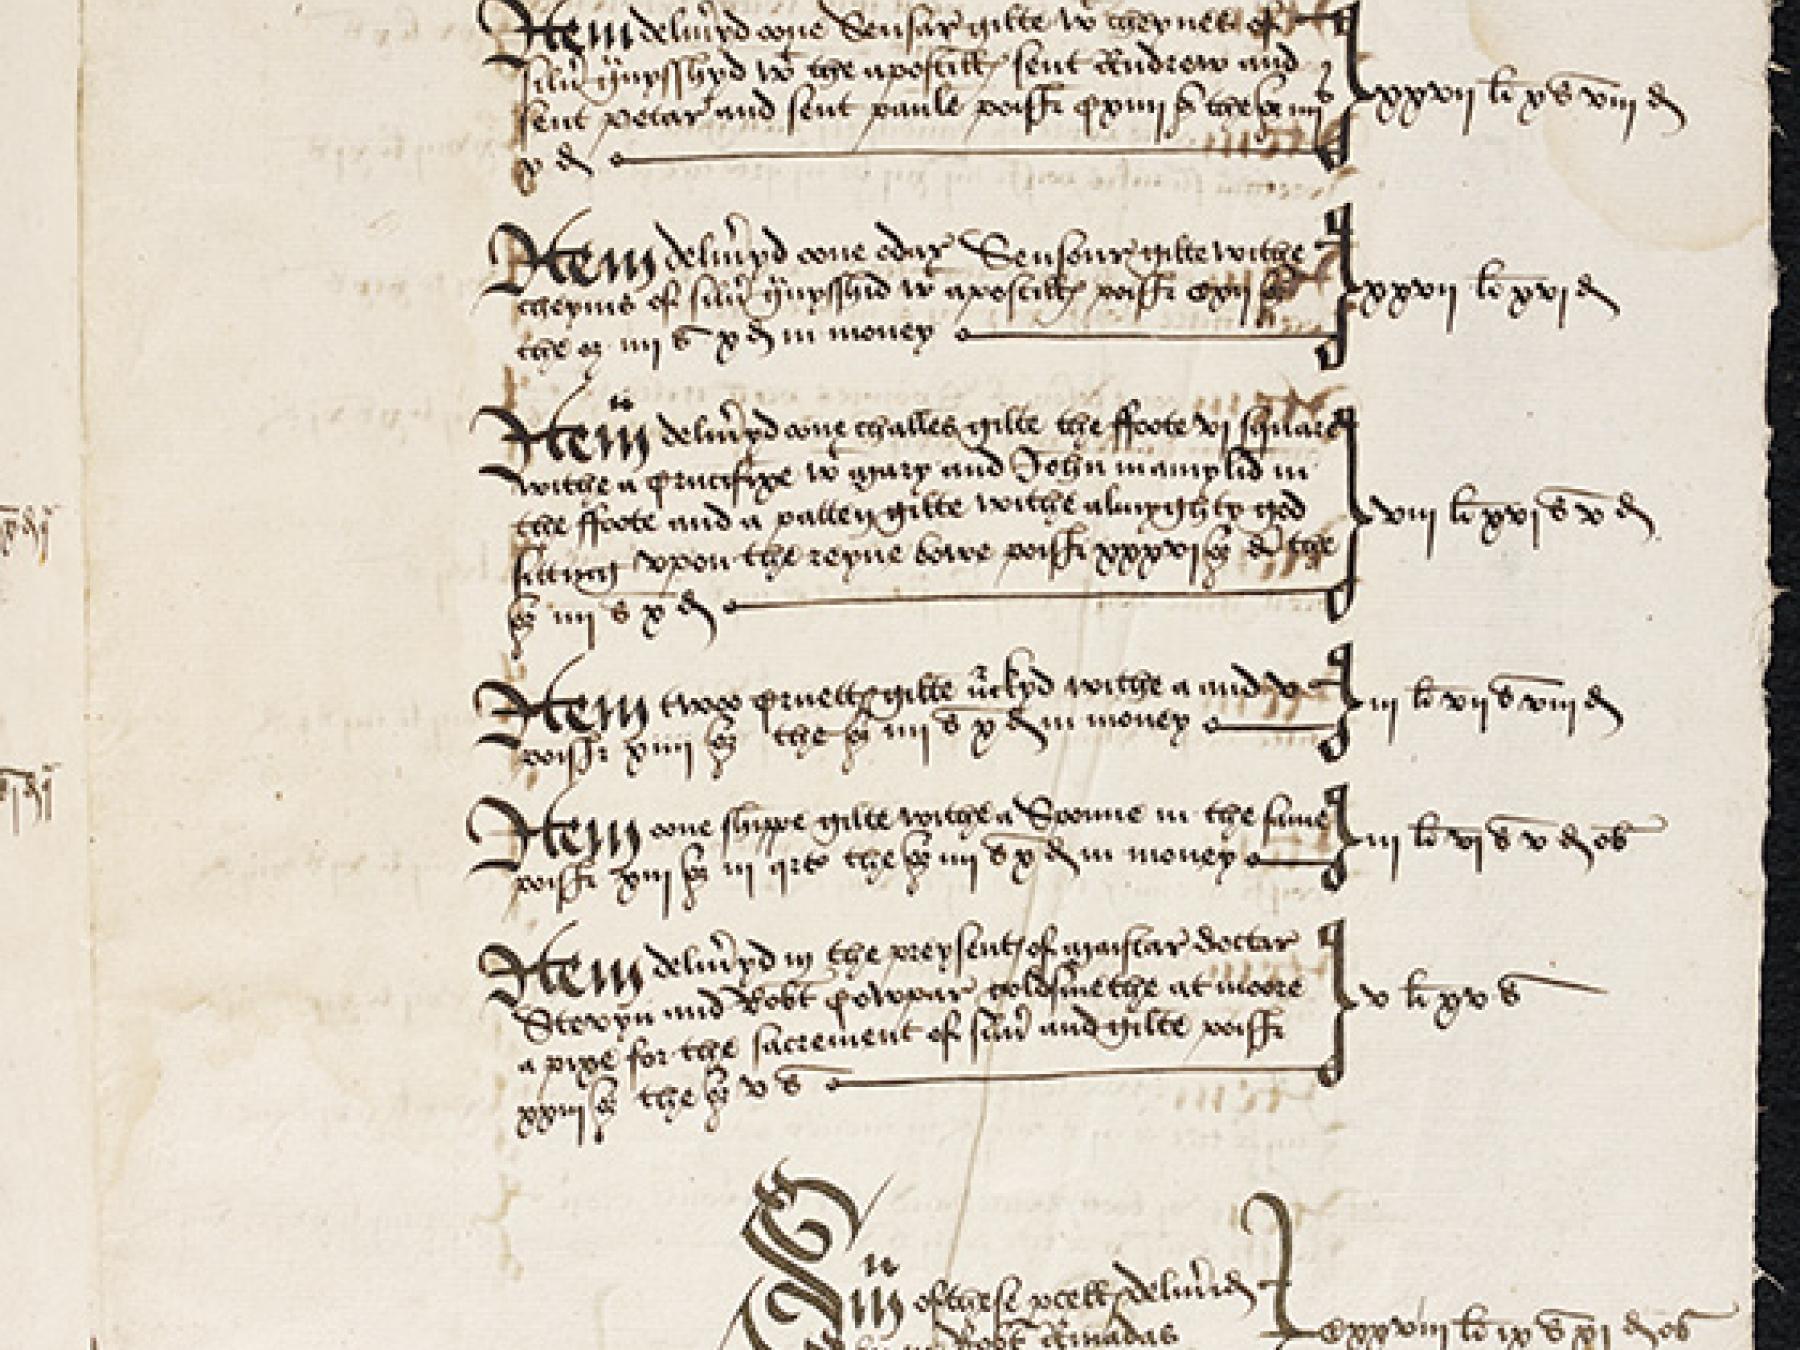 Item deliũyd oone Sensar gilte wt cheynes of
silũ ꝑuysshyd wt the apostill sent Andrew and
sent petar and sent paule poiss cxiiii oz the oz iiii s
x d
xxvii li x s viii d
Item deliũyd oone odar Sensour gilte withe
cheynis of silũ ꝑuysshid wt apostill poiss cxii oz
the oz iiii s x d in money
xxvii li xvi d
Item deliũyd oone challes gilte the ffoote vi square
withe a crucifixe wt mary and John inamylid in
the ffoote and a patten gilte withe almyghty god
sitting vpon the reyne bowe poiss xxxvi oz di the
oz iiii s x d
viii li xvi s v d
Item twoo cruetts gilte mͬkyd withe a and v
poiss xiiii oz the oz iiii s x d in money
iii li vii s viii d
Item oone shippe gilte withe a Spoune in the same
poiss xiii oz iii qrts the oz iiii s x d in money
iii li vi s v d ob
Item delũyd in the preysent of maistar doctar
Stevyn and Robt Cowpar goldsmethe at moore
a pixe for the sacrement of silũ and gilte poiss
xxiii oz the oz v s
v li xv s
Sũm of these ꝑcell deliũid
Robt Amadas
cxxviii li ix s xi d ob